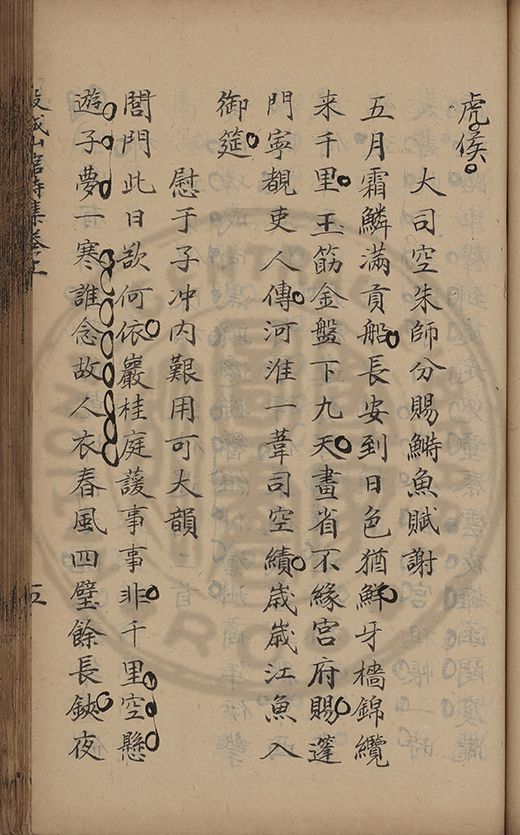 虎侯
大司空朱師分賜鰣魚賦謝
五月霜鱗滿貢船長安到日色猶鮮牙檣錦纜
来千里玉筯金盤下九天畫省不緣宮府賜蓬
門寧覩吏人傳河淮一葦司空績歲歲江魚入
御筵
慰于子冲内艱用可大韻
閭門此日歎何依巖桂庭萲事事非千里空懸
遊子夢一寒誰念故人衣春風四壁餘長鋏夜
山館詩集卷上
五